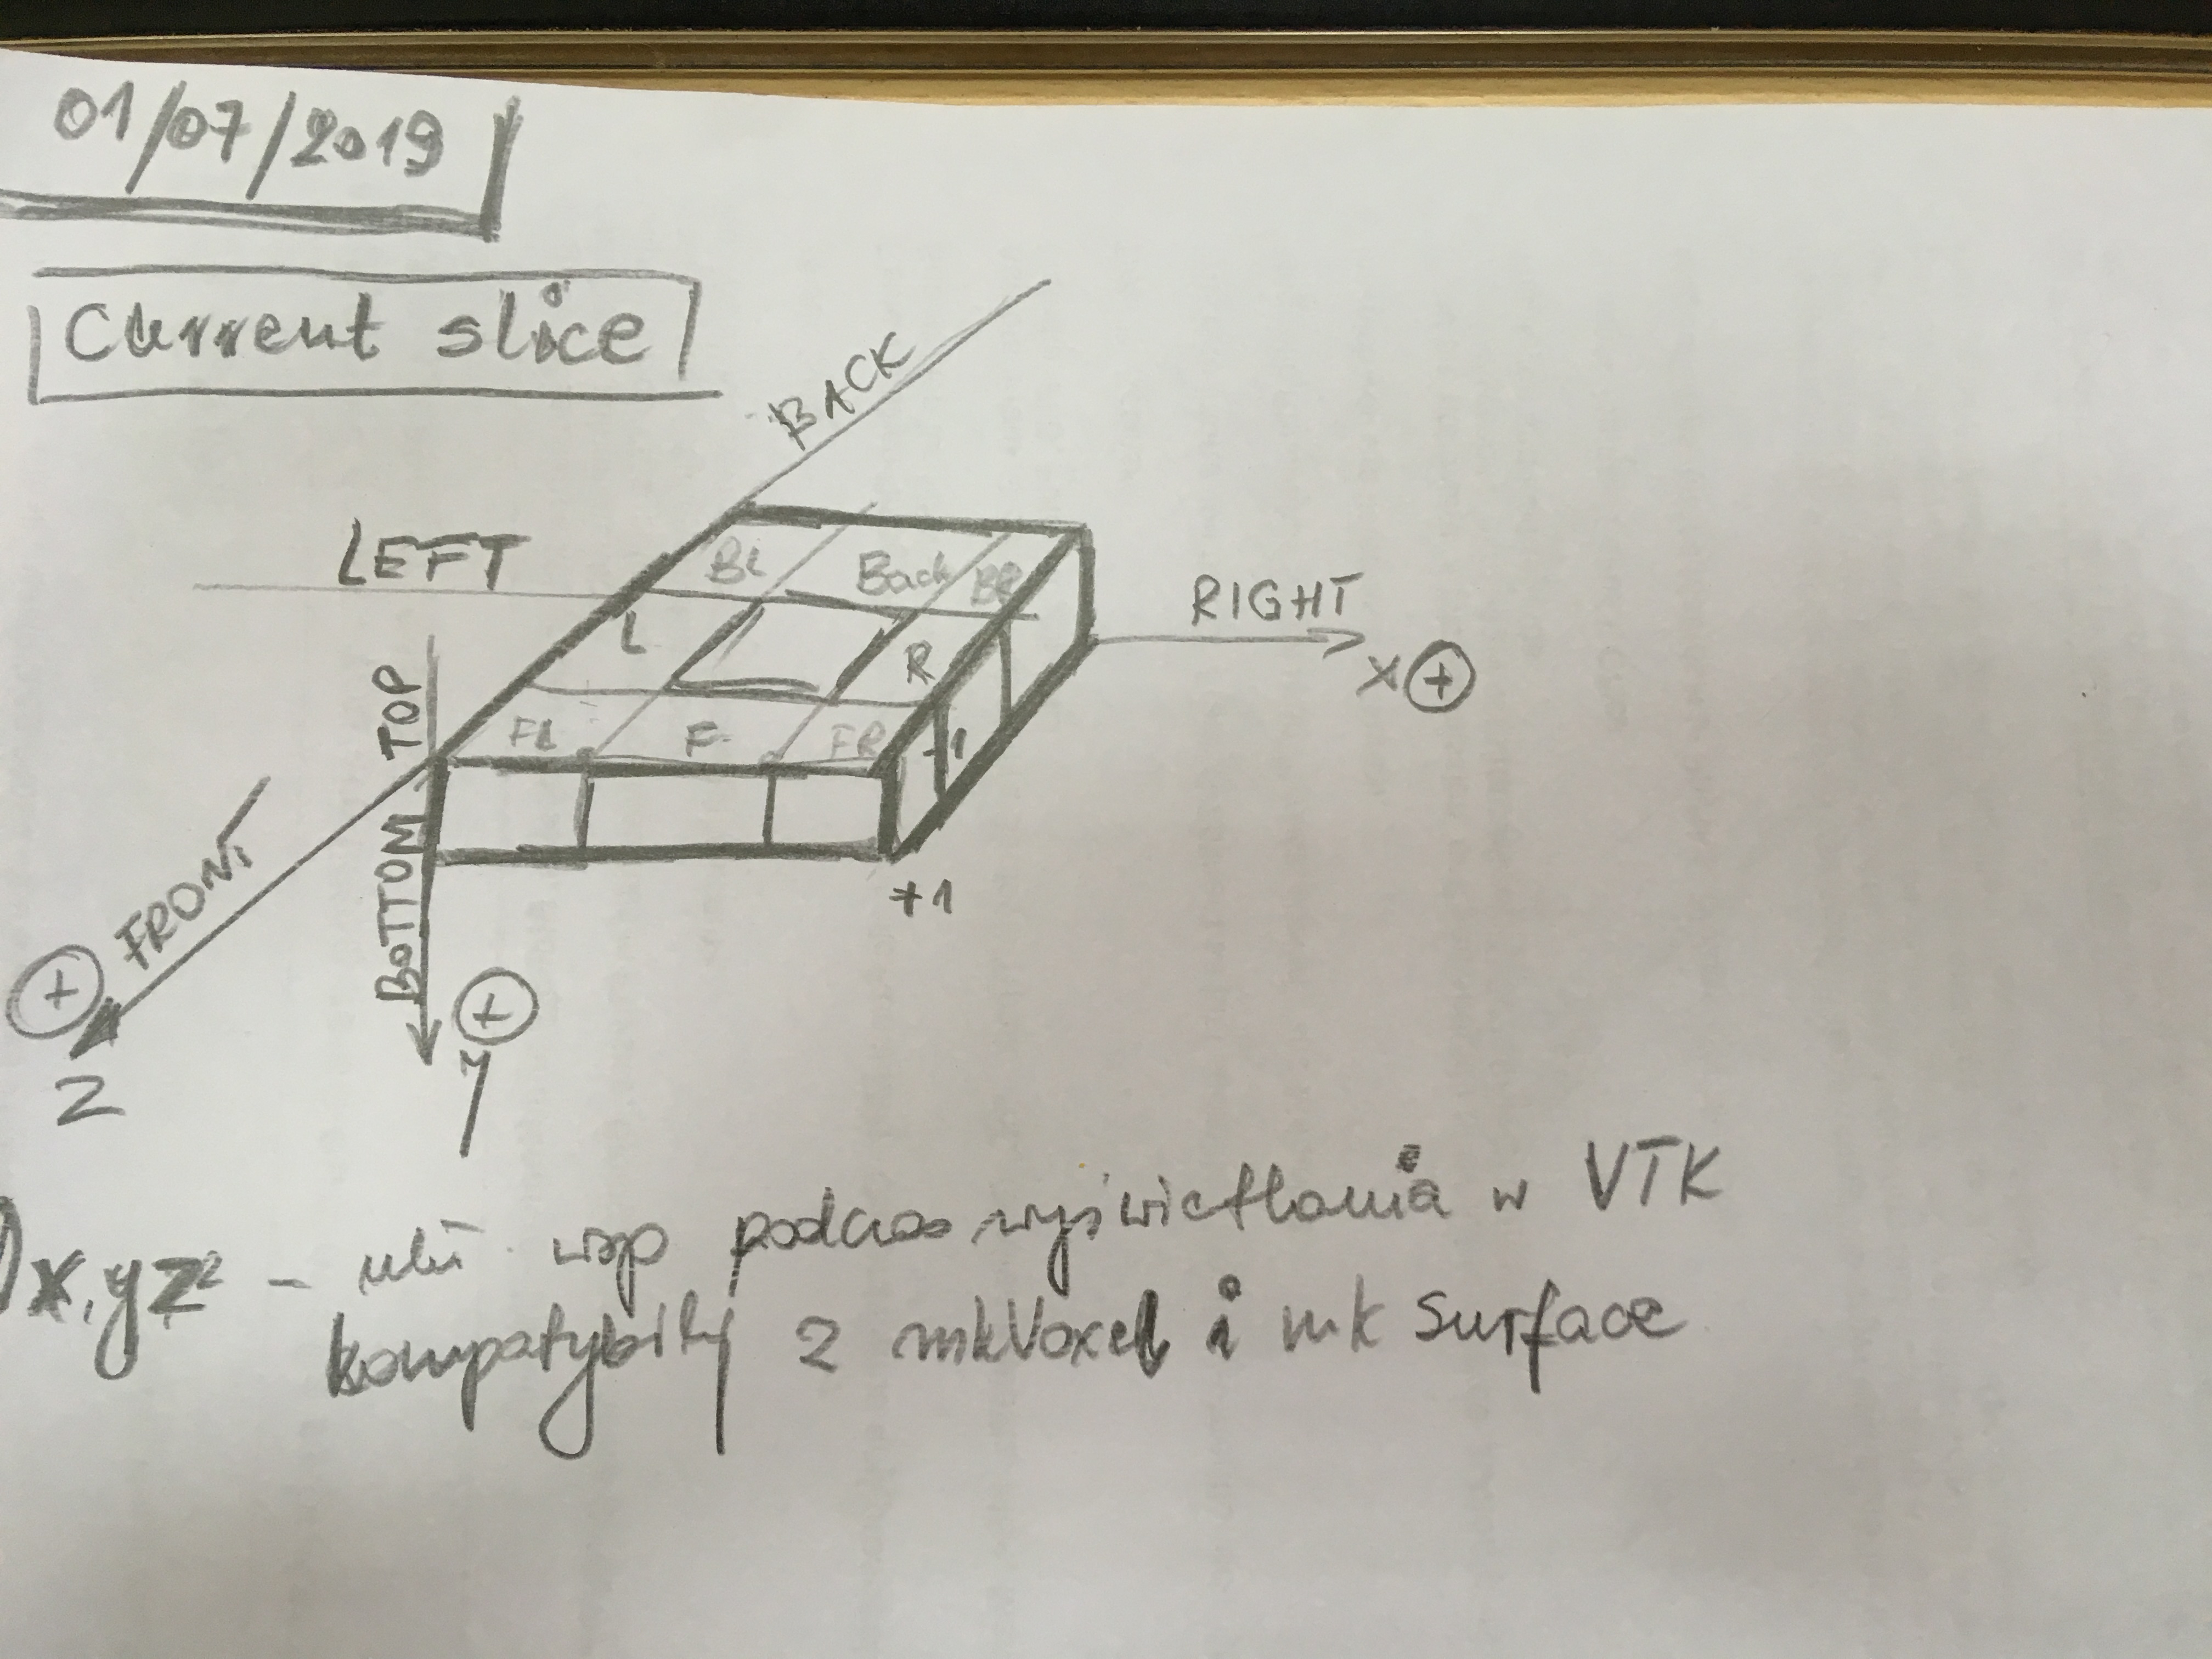 01/07/2019
Current slice
BACK
LEFT
BL Back BR
RIGHT
L R
X +
TOP
FL F FR
+1
BOTTOM
FRONT
+1
+
+
Z
y
x,yz - ukł. wsp podczas wyświetlania w VTK
kompatybilny z mkVoxel i mk Surface